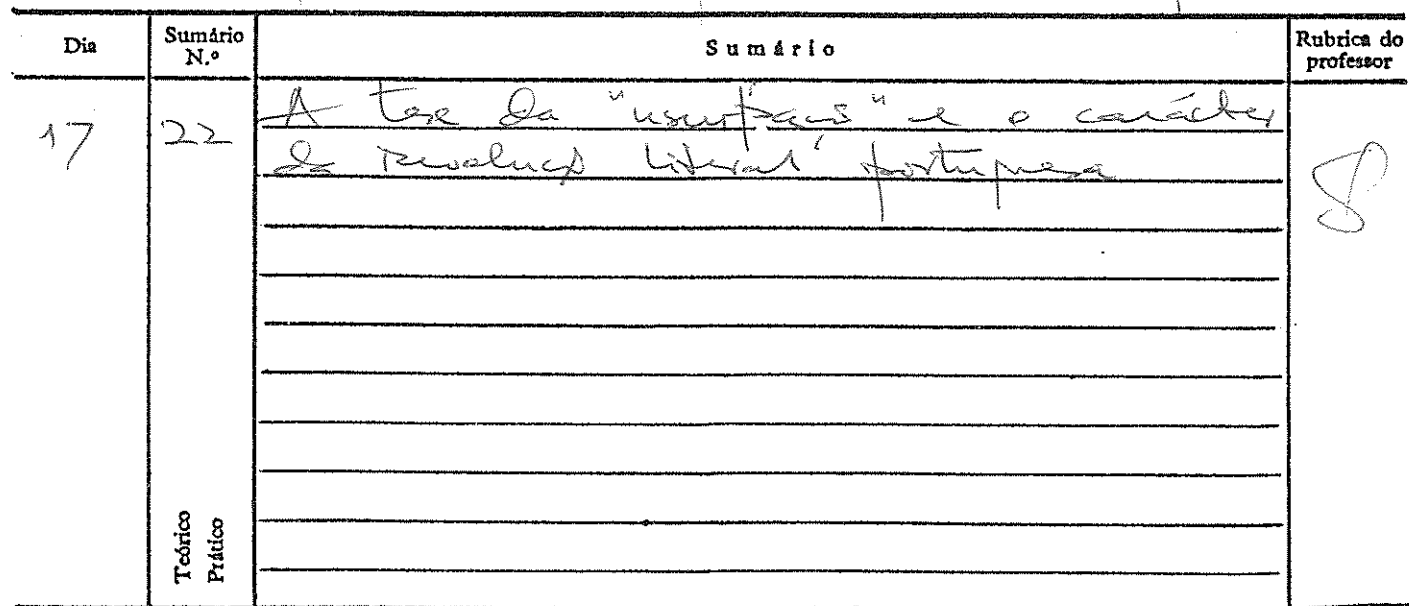 Dia
Sumário N.º
Sumário
Rubrica do professor
17
22
A tese da "usurpação" e o carácter
da Revolução liberal portuguesa
Teórico
Prático